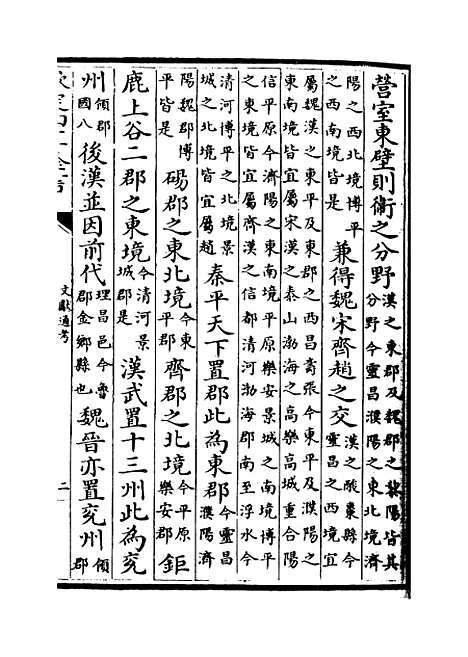 營室東壁則衛之分野漢之東郡及魏郡之黎陽皆其分野今靈昌濮陽之東北境濟
陽之西北境博平之西南境皆是兼得魏宋齊趙之交漢之酸棗縣今靈昌之西境宜
屬魏漢之東平及東郡之西昌壽張今東平及濮陽之東南境皆宜屬宋漢之泰山渤海之高樂高城重合陽
信平原今濟陽之東南境平原樂安景城之南境博平之東境皆宜屬齊漢之信都清河渤海郡南至浮水今
清河博平之北境景城之北境皆宜屬趙秦平天下置郡此為東郡今靈昌濮陽濟
陽魏郡博平皆是碭郡之東北境今東平齊郡之北境今平原樂安郡鉅
鹿上谷二郡之東境今清河景城郡是漢武置十三州此為兖
州領郡國八後漢並因前代理昌邑今魯郡金鄉縣也魏晉亦置兖州領郡
欽定四庫全書
文獻通考
二